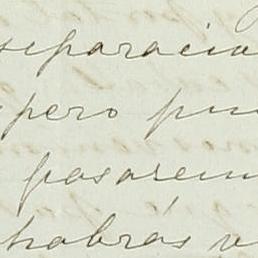 separacio
pero pu
pasarem
habrás v